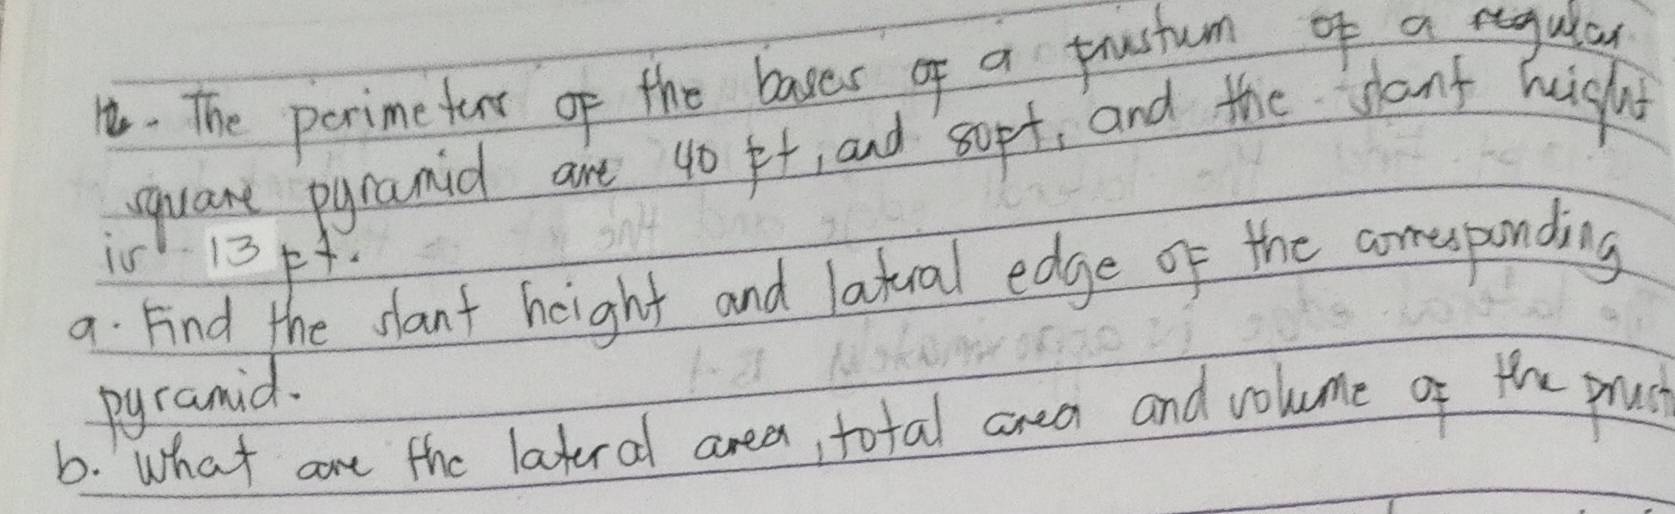 12. The perimeters of the bases of a frustum of a regular
square pyramid are 40 ft, and 80ft, and the slant height
is 13 ft.
a. Find the slant height and lateral edge of the corresponding
pyramid.
b. What are the lateral area, total area and volume of the frust